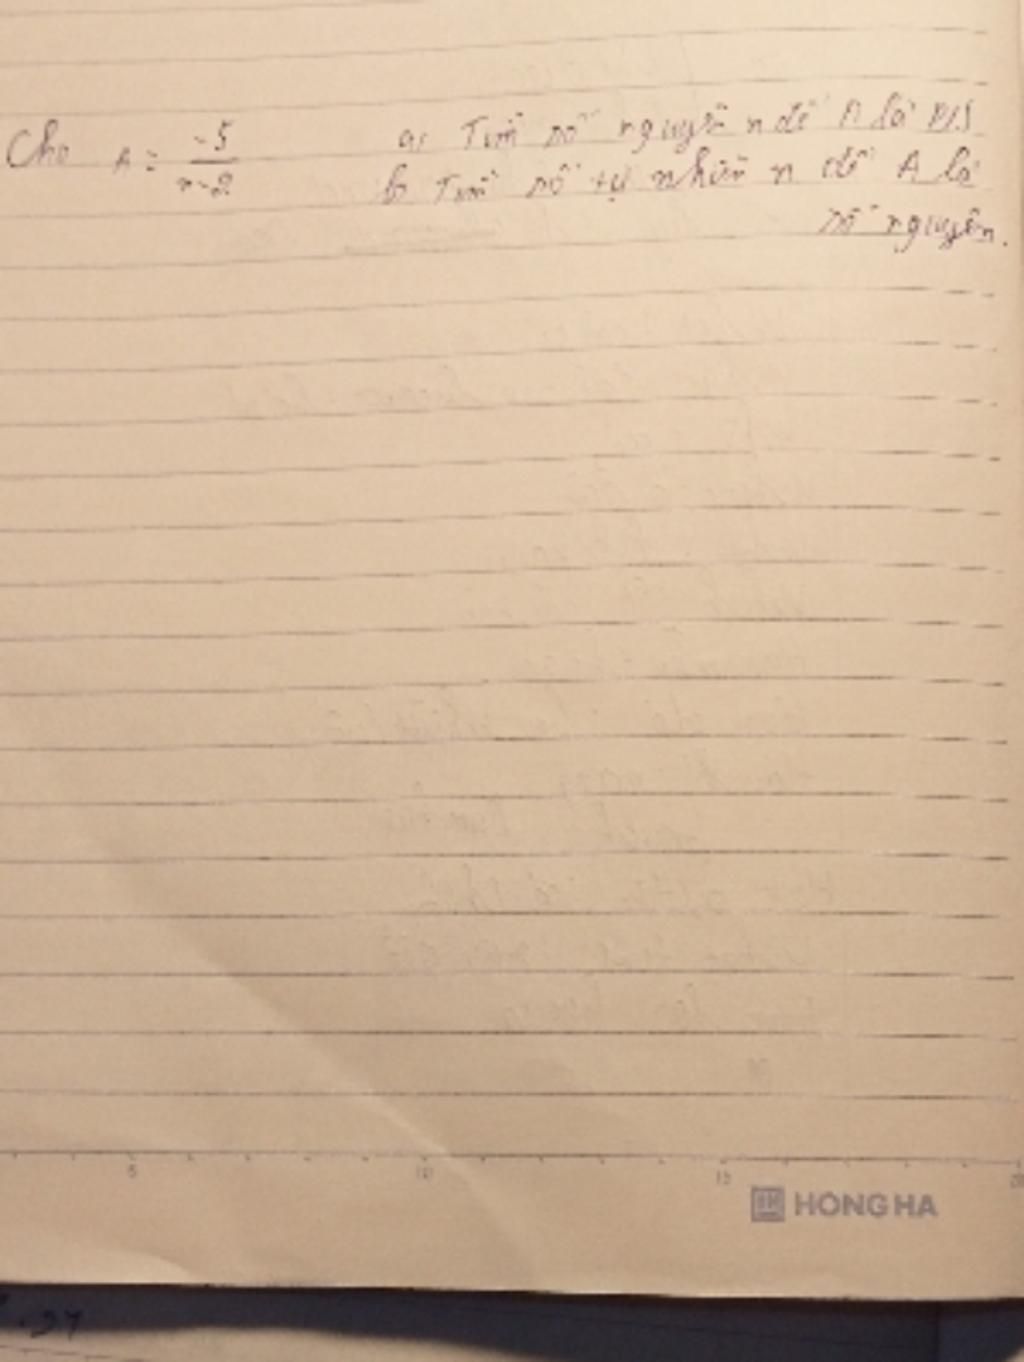 Cho A = -5 / n-2
a, Tìm số nguyên n để A là P/S
b, Tìm số tự nhiên n để A là
số nguyên.
5 10 15 20
HONG HA